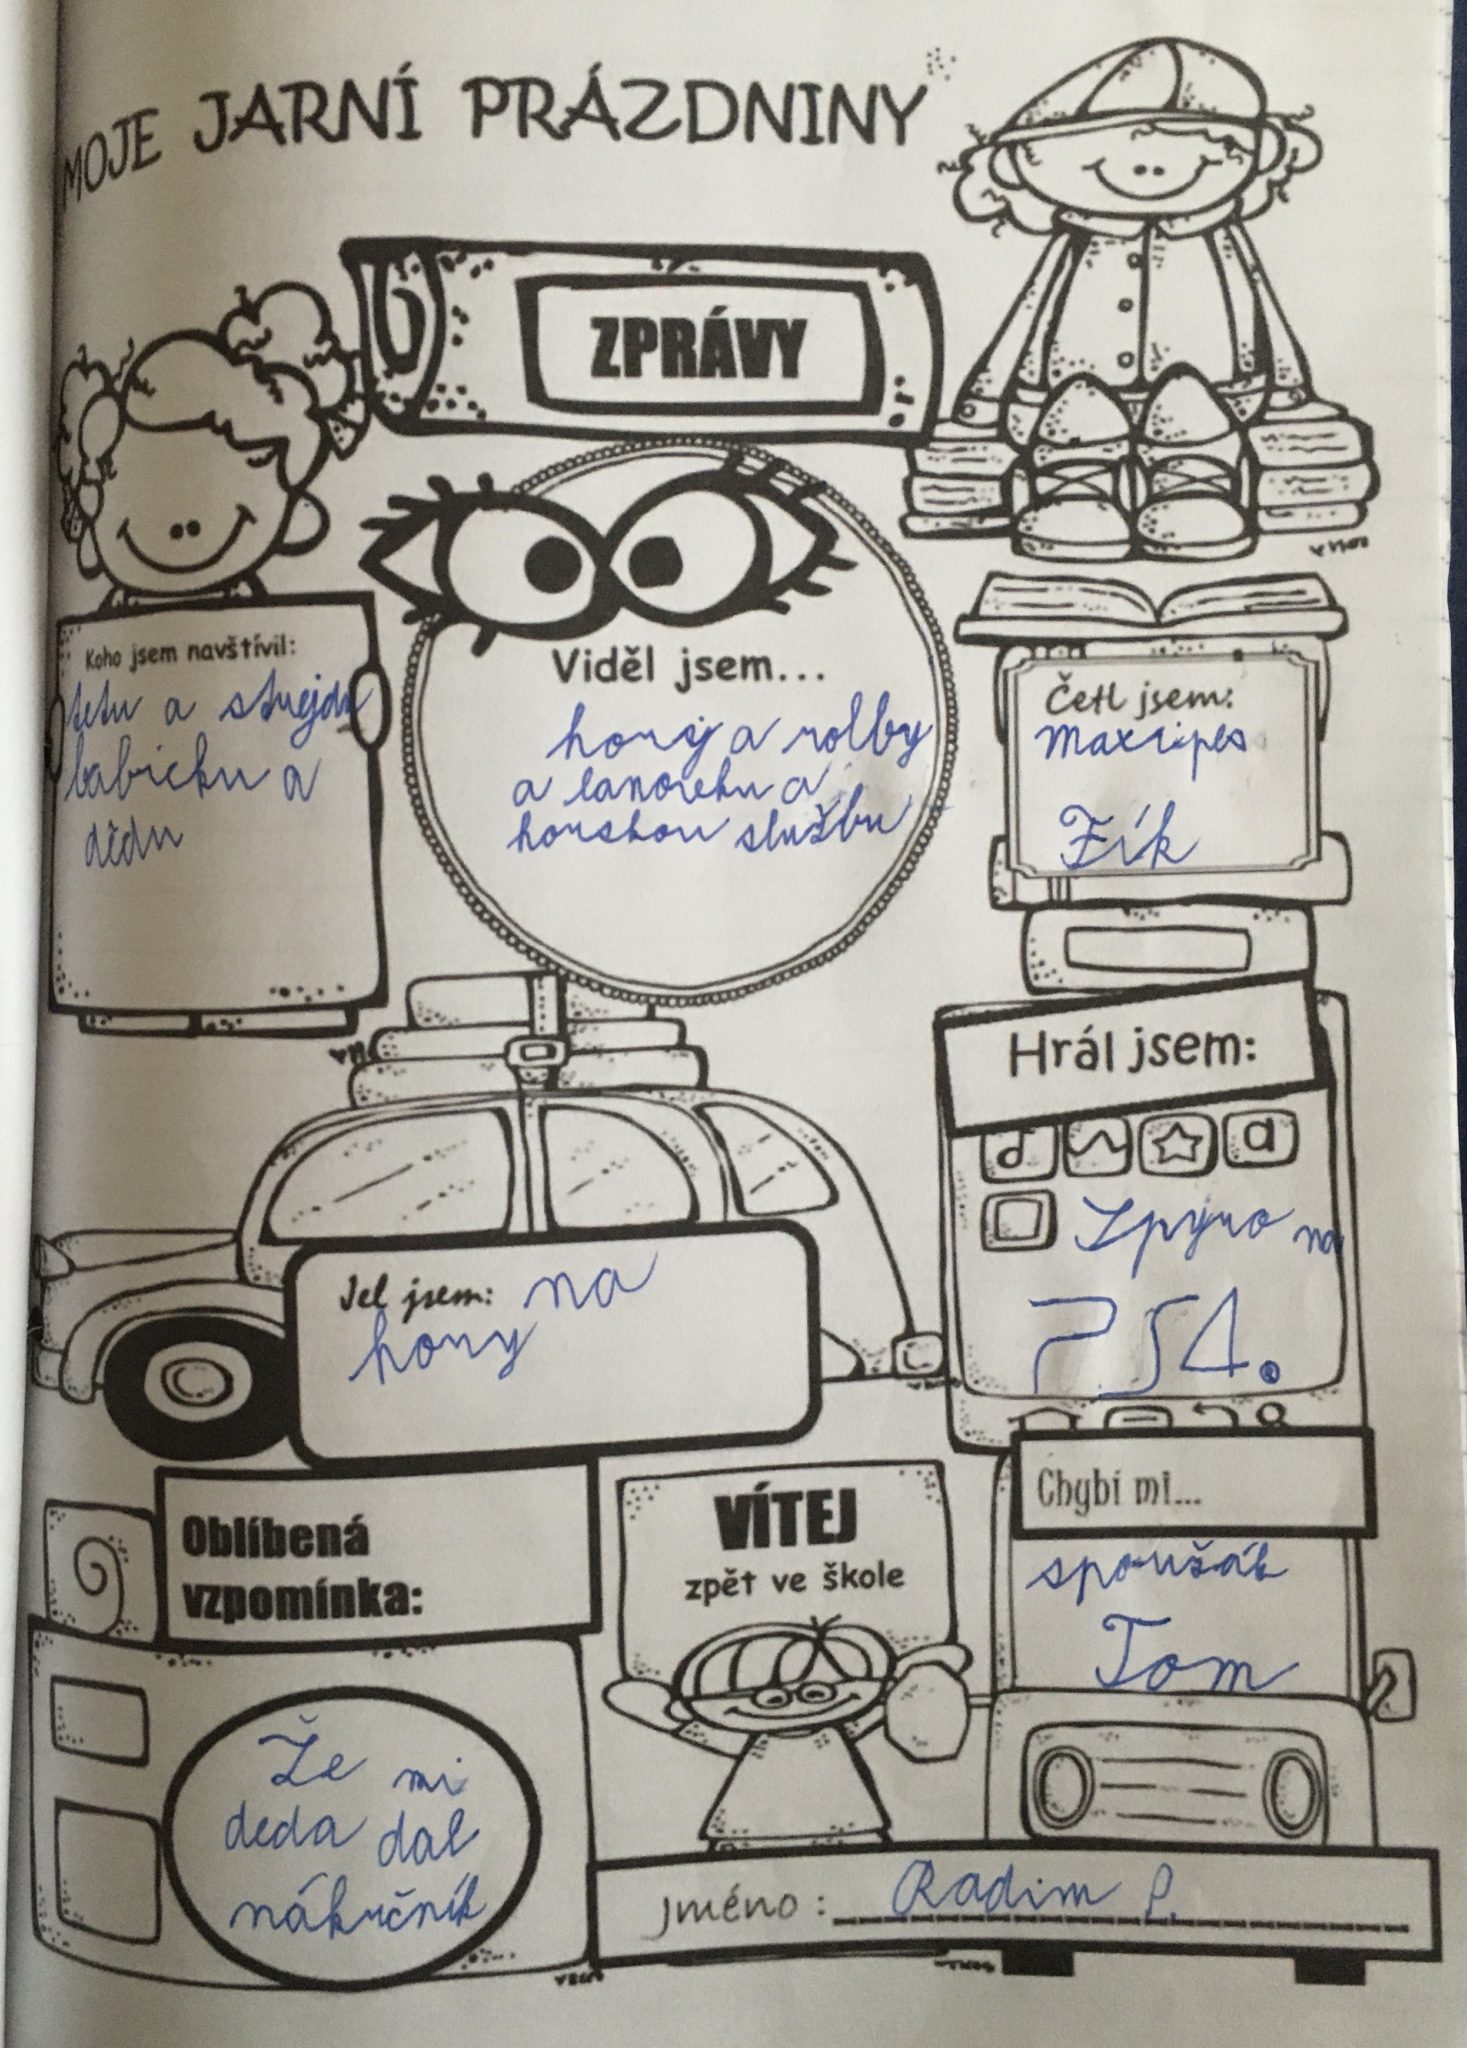 MOJE JARNÍ PRÁZDNINY
ZPRÁVY
Koho jsem navštívil:
tetu a strejdu
babicku a
dědu
Viděl jsem...
hory a rolby
a lanovku a
horskou službu
Četl jsem:
maxipes
Fík
Hrál jsem:
Spyro na
PS4.
Jel jsem: na
hory
Oblíbená
vzpomínka:
Že mi
deda dal
nákrčník
VÍTEJ
zpět ve škole
Chybí mi...
spoužák
Tom
Jméno: Radim P.